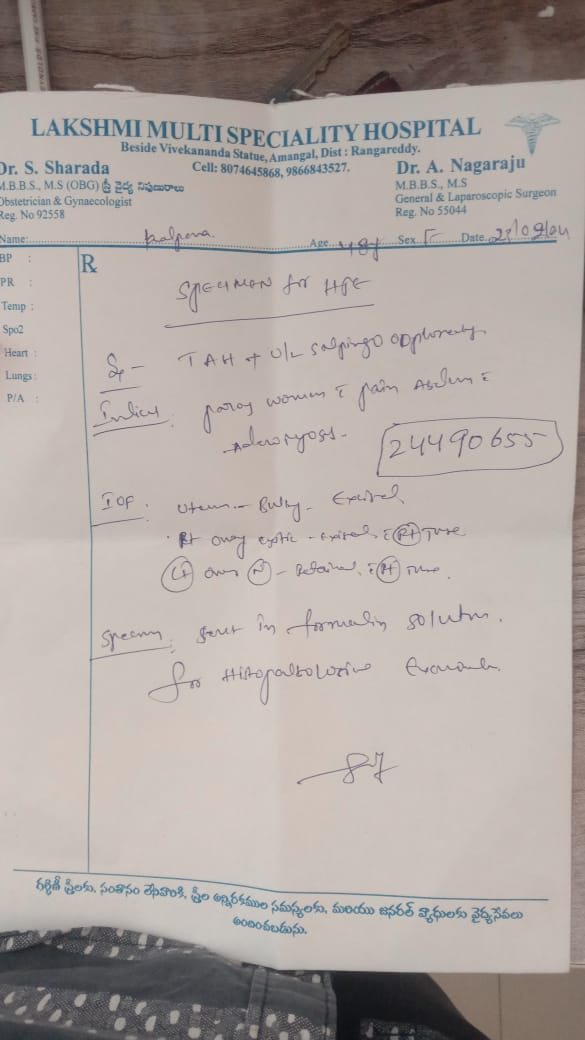 LAKSHMI MULTI SPECIALITY HOSPITAL
Beside Vivekananda Statue, Amangal, Dist : Rangareddy.
Cell: 8074645868, 9866843527.
Dr. S. Sharada
M.B.B.S., M.S (OBG) స్త్రీ వైద్య నిపుణురాలు
Obstetrician & Gynaecologist
Reg. No 92558
Dr. A. Nagaraju
M.B.B.S., M.S
General & Laparoscopic Surgeon
Reg. No 55044
Name: Kalpana Age 48y Sex F Date
BP :
PR :
Temp :
Spo2
Heart :
Lungs:
P/A :
R
Specimen for HPE
TAH + U/L Salpingo
women c pain
Adenomyosis.
24490655
Uterus - Bulky - Excised
Rt ovary cystic - excised, c Rt Tube
Lt ovary N - Retained, c Tube.
sent in formalin solution.
for Histopathological
గర్భిణీ స్త్రీలకు, సంతానం లేనివారికి, స్త్రీల అన్నిరకముల సమస్యలకు, మరియు జనరల్ వ్యాధులకు వైద్యసేవలు
అందించబడును.